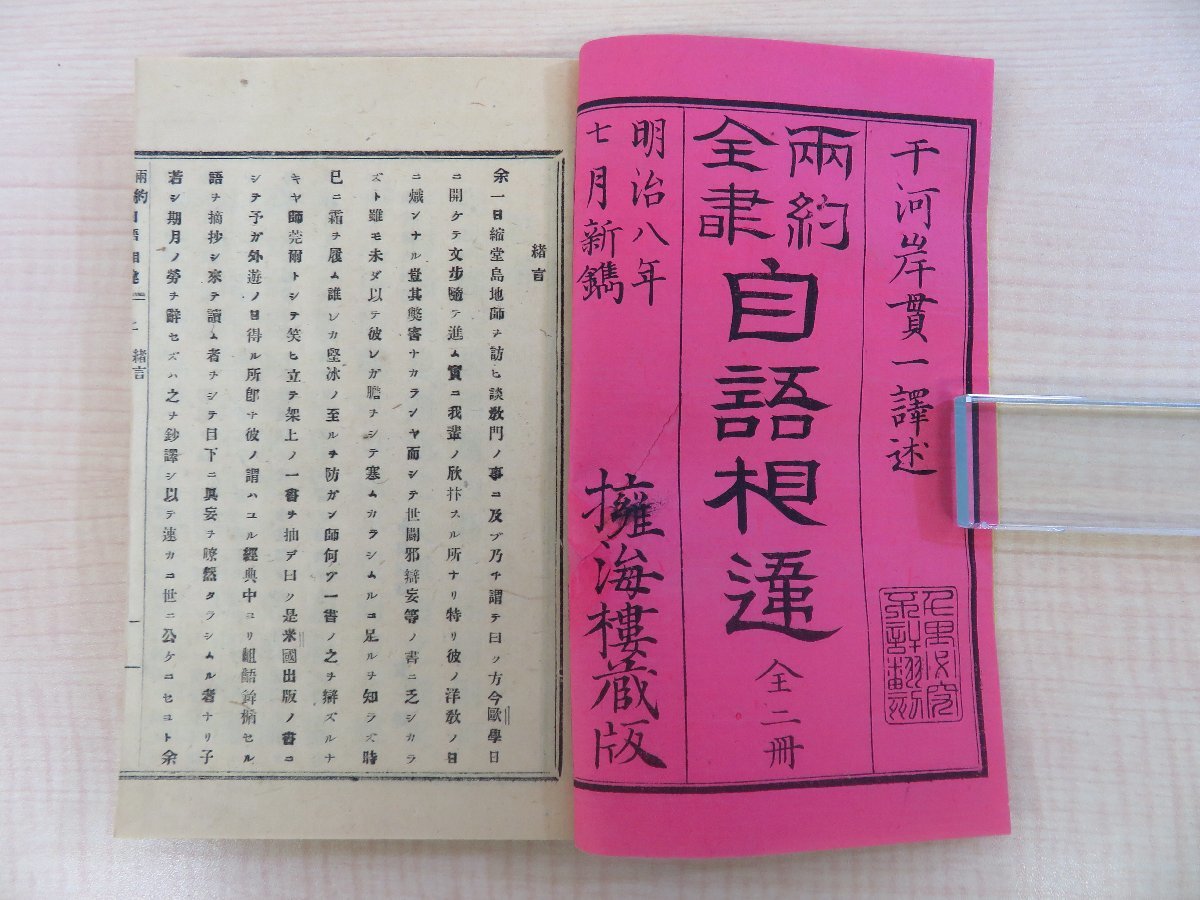 干河岸貫一譯述
兩約
全書
自語相違
全二冊
明治八年
七月新鐫
擁海樓藏版
緒言
余一日縮堂島地師ヲ訪ヒ談敎門ノ事ニ及ブ乃チ謂テ曰ク方今歐學日
ニ開ケテ文步隨テ進ム實ニ我輩ノ欣抃スル所ナリ特リ彼ノ洋敎ノ日
ニ熾ンナル豈其奬害ナカランヤ而シテ世闢邪辯妄等ノ書ニ乏シカラ
ズト雖モ未ダ以テ彼レガ膽ヲシテ寒ムカラシムルニ足ルヲ知ラズ時
已ニ霜ヲ履ム誰レカ堅冰ノ至ルヲ防ガン師何ゾ一書ノ之ヲ辯ズルナ
キヤ師莞爾トシテ笑ヒ立テ架上ノ一書ヲ抽デ曰ク是米國出版ノ書ニ
シテ予ガ外遊ノ日得ル所郎チ彼ノ謂ハユル經典中ヨリ齟語鉾楯セル
語ヲ摘抄シ來テ讀ム者ヲシテ目下ニ眞妄ヲ瞭然タラシムル者ナリ子
若シ期月ノ勞ヲ辭セズハ之ヲ鈔譯シ以テ速カニ世ニ公ケニセヨト余
兩約自語相違 上 緒言 一